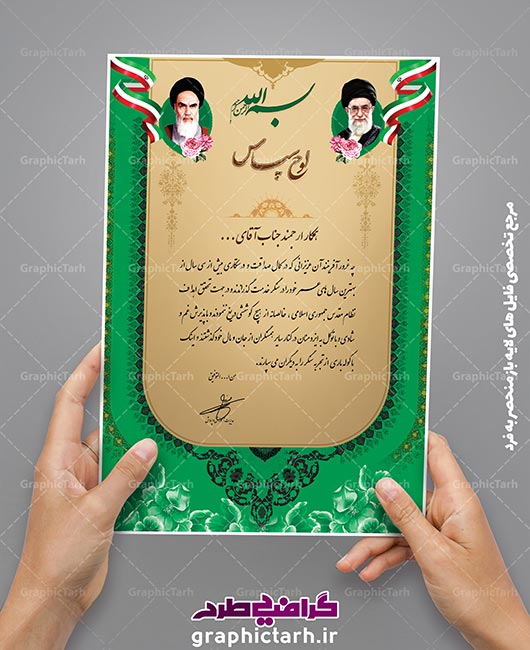 بسم الله الرحمن الرحیم
لوح سپاس
همکار ارجمند جناب آقای ...
چه غرور آفرینند آن عزیزانی که در کمال صداقت و درستکاری بیش از سی سال از
بهترین سال های عمر خود را در سنگر خدمت گذرانده و در جهت تحقق اهداف
نظام مقدس جمهوری اسلامی، خالصانه از هیچ کوششی دریغ ننموده و با پذیرش غم و
شادی و با توکل به ایزد منان در کنار سایر همسنگران از جان و مال خود گذشتند و اینک
با کوله باری از تجربه سنگر را به دیگران می سپارند.
و من ا... التوفیق
مرجع تخصصی فایل های لایه باز منحصر به فرد
گرافیک طرح
graphictarh.ir
GraphicTarh